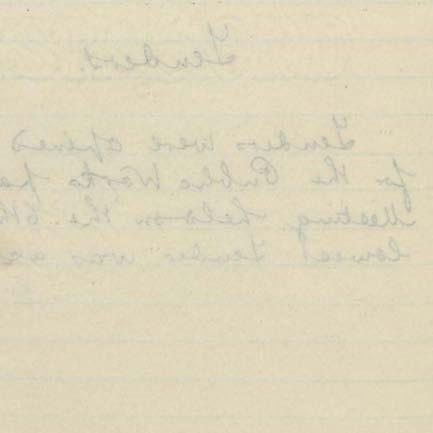 Tenders.
Tenders were opened
for the Public Works
Meeting held on the 6th
lowest Tender was